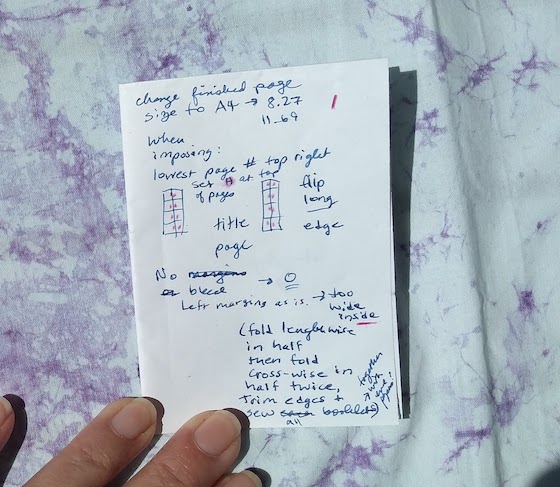 change finished page
size to A4 → 8.27
11.69
when
imposing:
lowest page # top right
set # at top
of pages
flip
long
edge
title
page
No margins
or bleed → 0
Left margins as is. → too
wide
inside
(fold lengthwise
in half
then fold
cross-wise in
half twice,
trim edges +
sew each booklets)
all
together
with